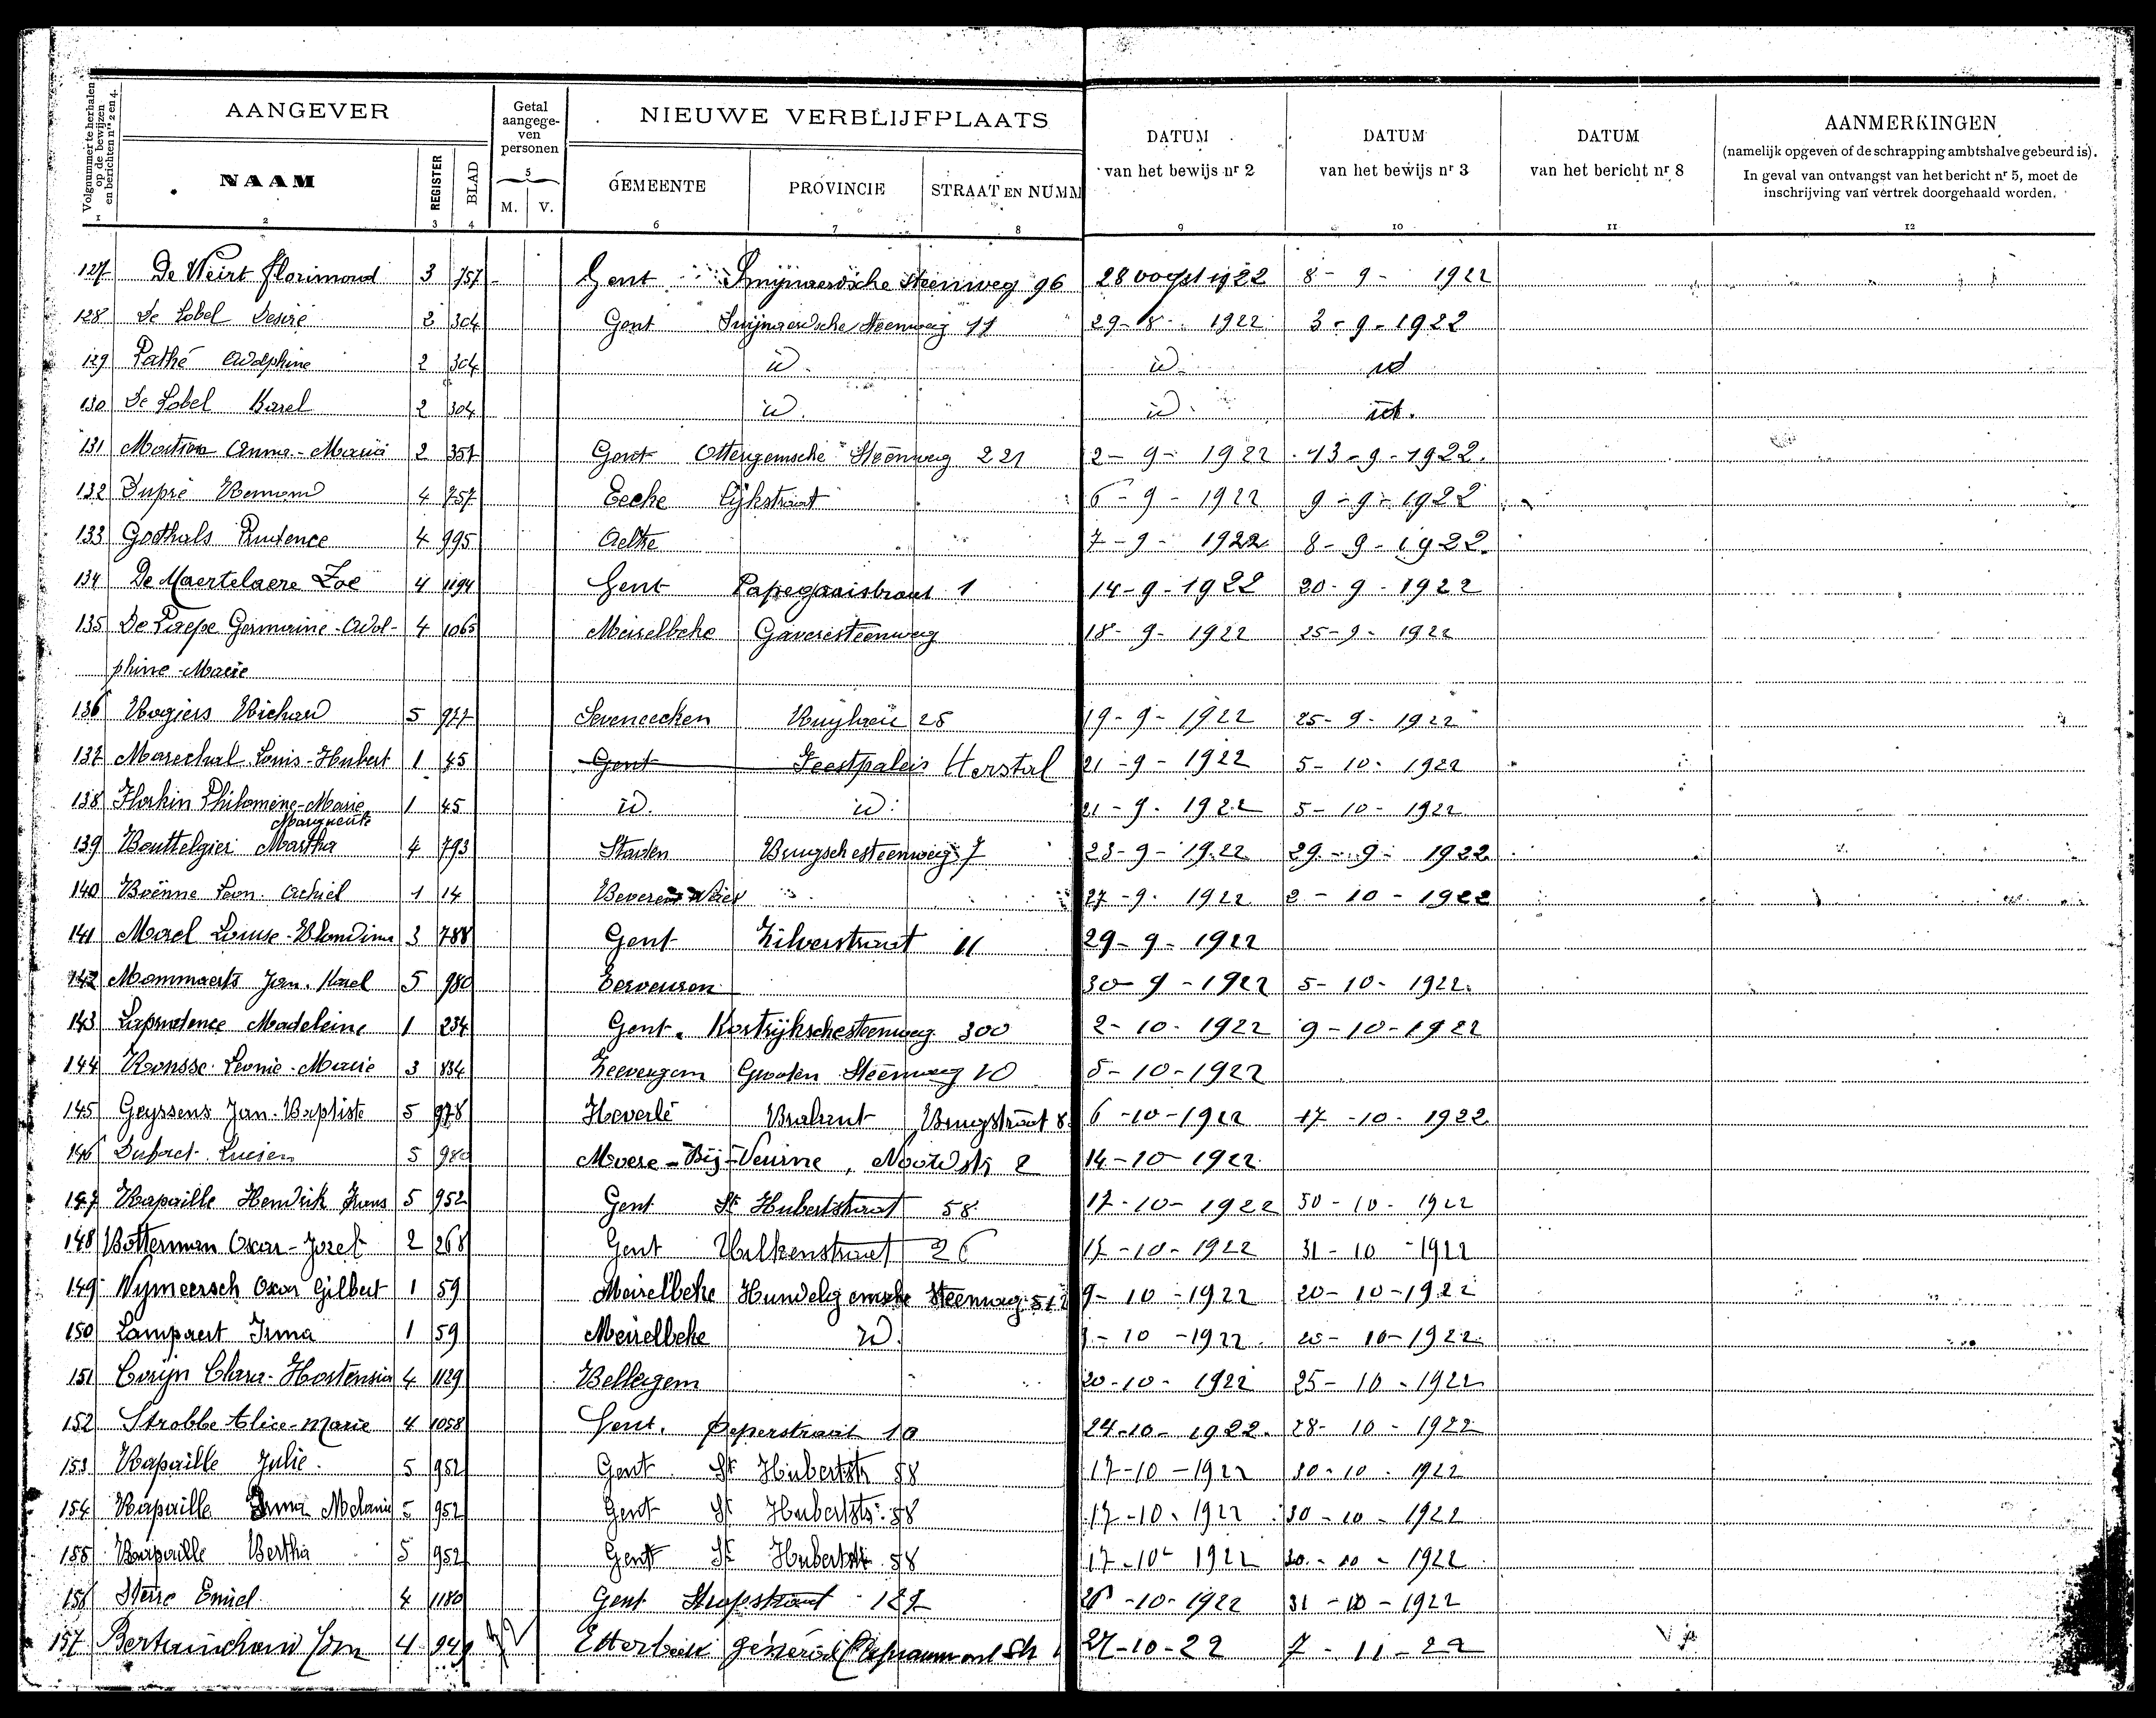 Volgnummer te herhalen op de bewijzen en berichten nrs 2 en 4.
AANGEVER
Getal aangegeven personen
NIEUWE VERBLIJFPLAATS
DATUM van het bewijs nr 2
DATUM van het bewijs nr 3
DATUM van het bericht nr 8
AANMERKINGEN
(namelijk opgeven of de schrapping ambtshalve gebeurd is).
In geval van ontvangst van het bericht nr 5, moet de
inschrijving van vertrek doorgehaald worden.
NAAM REGISTER BLAD M. V. GEMEENTE PROVINCIE STRAAT EN NUMM
1 2 3 4 5 6 7 8 9 10 11 12
127 De Weirt Florimond 3 757 Gent Smijnaerdsche Steenweg 96 28 oogst 1922 8 - 9 - 1922
128 De Lobel Desiré 2 304 Gent Swijnaerdsche Steenweg 11 29-8- 1922 3 - 9 - 1922
129 Pathé Adolphine 2 304 id. id. id
130 De Lobel Karel 2 304 id. id. id.
131 Anna-Maria 2 357 Gent Ottergemsche Steenweg 221 2- 9- 1922 13-9-1922.
132 Dupré 4 757 Eecke Lijkstraat 6-9- 1922 9-9-1922
133 Goethals Prudence 4 995 Aeltre 7-9- 1922 8-9-1922.
134 De Maertelaere Zoe 4 1194 Gent Papegaaistraat 1 14-9-1922 20-9-1922
135 De Paepe Germaine-Adol- 4 1065 Meirelbeke Gaveresteenweg 18-9- 1922 25-9- 1922
phine-Marie
136 Rogiers Richard 5 977 Seveneecken 28 19-9-1922 25-9-1922
137 Marechal Louis-Hubert 1 45 Gent Feestpaleis Herstal 21-9-1922 5-10-1922
138 Horkin Philomène-Marie 1 45 id. id. 21-9-1922 5-10-1922
Marguerite
139 Martha 4 793 Staden Brugschesteenweg 7 23-9-1922 29-9-1922
140 Leon Achiel 1 14 Beveren 27-9-1922 2-10-1922
141 Morel Louise-Blondina 3 788 Gent Zilverstraat 11 29-9-1922
142 Mommaerts Jan. Karel 5 980 Tervuren 30-9-1922 5-10-1922.
143 Laprudence Madeleine 1 234 Gent. Kortrijkschesteenweg 300 2-10-1922 9-10-1922
144 Ronsse Leonie-Marie 3 834 Zevergem Grooten Steenweg 10 5-10-1922
145 Geyssens Jan-Baptiste 5 978 Heverlé Brabant Brugstraat 8 6-10-1922 17-10-1922
146 Lucien 5 980 Moere-Bij-Veurne, Noordstr 2 14-10-1922
147 Rapaille Hendrik Frans 5 952 Gent St Hubertstraat 58 17-10-1922 30-10-1922
148 Botterman Oscar-Jozef 2 268 Gent 26 17-10-1922 31-10-1922
149 Wymeersch Oscar Gilbert 1 59 Meirelbeke Hundelgemsche Steenweg 9-10-1922 20-10-1922
150 Lampaert Irma 1 59 Meirelbeke id. -10-1922 20-10-1922
151 Corijn Clara-Hortensia 4 1129 Bellegem 20-10-1922 25-10-1922
152 Strobbe Alice-Marie 4 1058 Gent. Peperstraat 10 24-10-1922. 28-10-1922
153 Rapaille Julie. 5 952 Gent St Hubertstr 58 17-10-1922 30-10-1922
154 Rapaille Irma Melania 5 952 Gent St Hubertstr. 58 17-10-1922 30-10-1922
155 Rapaille Bertha 5 952 Gent St Hubertstr 58 17-10-1922 30-10-1922
156 Emiel 4 1180 Gent Stropstraat 26-10-1922 31-10-1922
157 4 949 Etterbeek Général 27-10-22 7-11-22